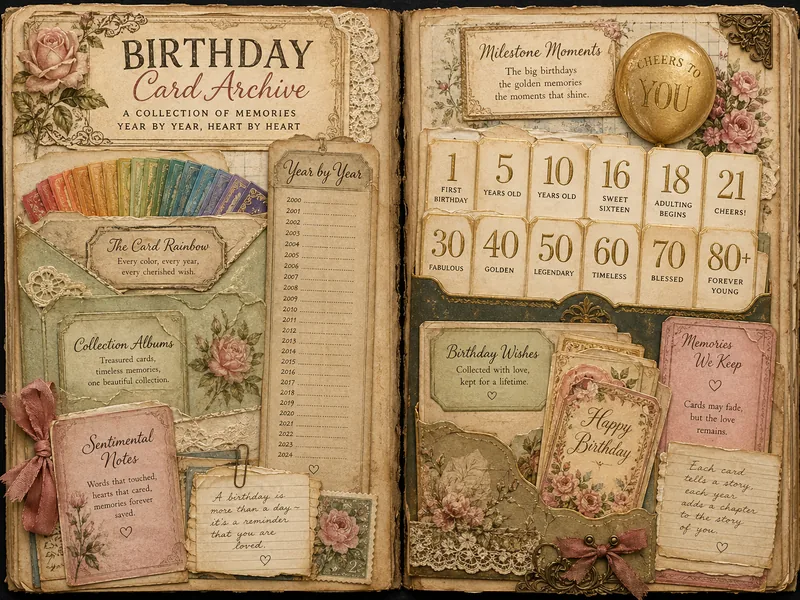 BIRTHDAY
Card Archive
A COLLECTION OF MEMORIES
YEAR BY YEAR, HEART BY HEART
The Card Rainbow
Every color, every year,
every cherished wish.
Collection Albums
Treasured cards,
timeless memories,
one beautiful collection.
Sentimental
Notes
Words that touched,
hearts that cared,
memories forever
saved.
A birthday is
more than a day–
it's a reminder
that you are
loved.
Year by Year
2000
2001
2002
2003
2004
2005
2006
2007
2008
2009
2010
2011
2012
2013
2014
2015
2016
2017
2018
2019
2020
2021
2022
2023
2024
Milestone Moments
The big birthdays
the golden memories
the moments that shine.
CHEERS TO
YOU
1
FIRST
BIRTHDAY
5
YEARS OLD
10
YEARS OLD
16
SWEET
SIXTEEN
18
ADULTING
BEGINS
21
CHEERS!
30
FABULOUS
40
GOLDEN
50
LEGENDARY
60
TIMELESS
70
BLESSED
80+
FOREVER
YOUNG
Birthday Wishes
Collected with love,
kept for a lifetime.
Happy
Birthday
Memories
We Keep
Cards may fade,
but the love
remains.
Each card
tells a story,
each year
adds a chapter
to the story
of you.